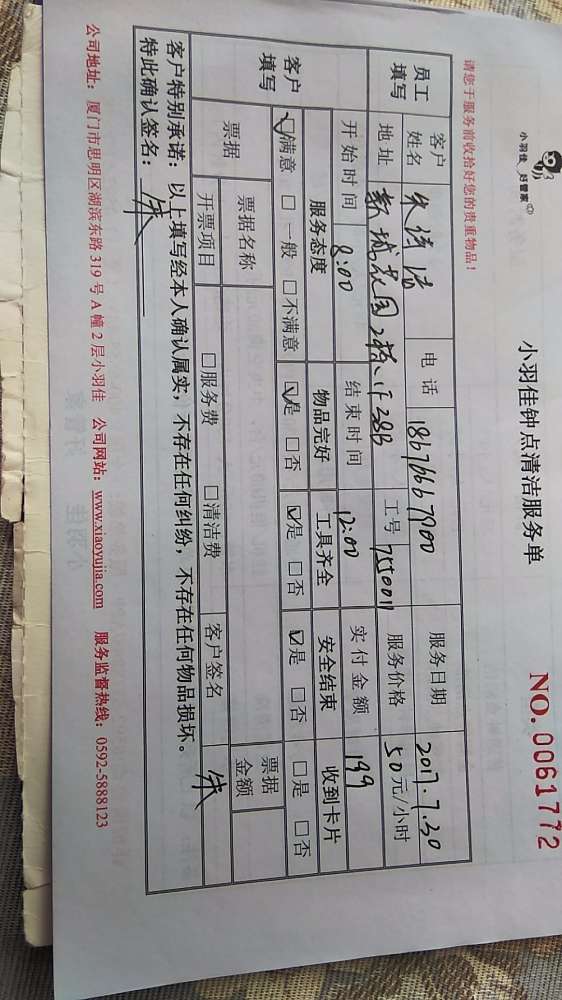 小羽佳 好管家
小羽佳钟点清洁服务单
NO. 0061772
请您于服务前收拾好您的贵重物品！
员工填写 客户姓名 朱 电话 18676667900 服务日期 2017.7.30
地址 新城花园2栋 28B 工号 7550011 服务价格 50元/小时
开始时间 8:00 结束时间 12:00 实付金额 199
客户填写 服务态度 物品完好 工具齐全 安全结束 收到卡片
☑满意 □一般 □不满意 ☑是 □否 ☑是 □否 ☑是 □否 □是 □否
票据 票据名称 票据金额
开票项目 □服务费 □清洁费 客户签名 朱
客户特别承诺：以上填写经本人确认属实，不存在任何纠纷，不存在任何物品损坏。
特此确认签名：朱
公司地址：厦门市思明区湖滨东路 319 号 A 幢 2 层小羽佳 公司网站：www.xiaoyujia.com 服务监督热线：0592-5888123